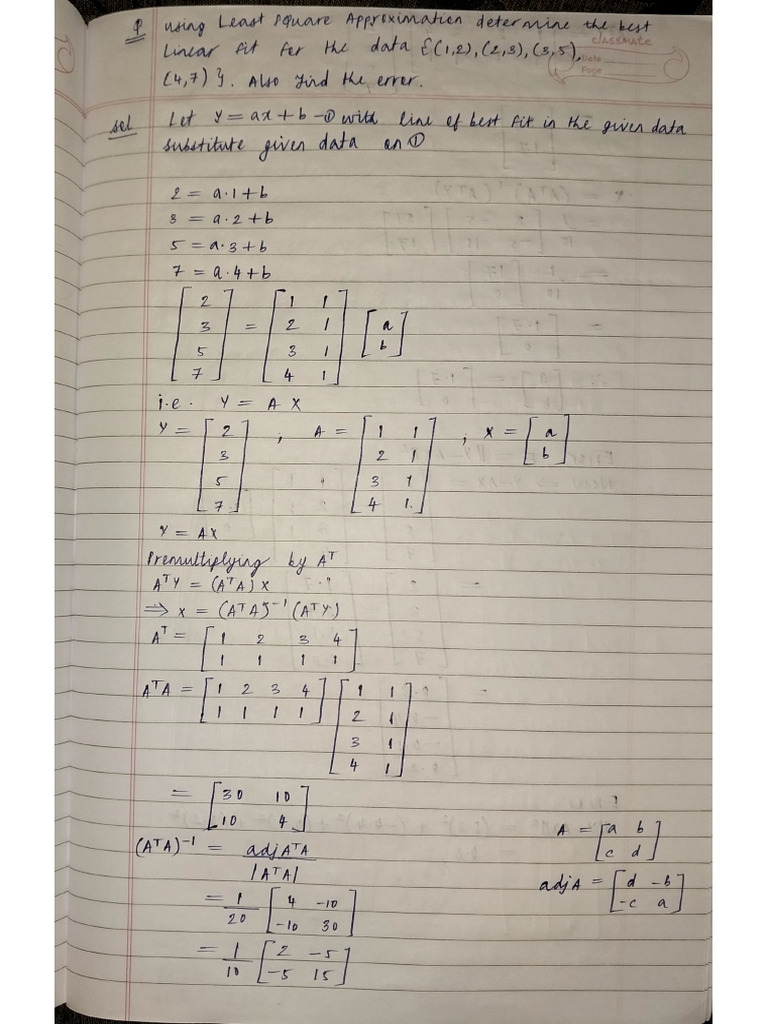 Q using Least Square Approximation determine the best
Linear fit for the data {(1,2), (2,3), (3,5),
classmate
Date
Page
(4,7)}. Also find the error.
sol Let Y = ax + b -① with line of best fit in the given data
substitute given data on ①
2 = a·1 + b
3 = a·2 + b
5 = a·3 + b
7 = a·4 + b
[2 3 5 7] = [1 1; 2 1; 3 1; 4 1] [a b]
i.e. Y = A X
Y = [2 3 5 7] ; A = [1 1; 2 1; 3 1; 4 1] ; X = [a b]
Y = AX
Premultiplying by Aᵀ
AᵀY = (AᵀA) X
⇒ X = (AᵀA)⁻¹ (AᵀY)
Aᵀ = [1 2 3 4; 1 1 1 1]
AᵀA = [1 2 3 4; 1 1 1 1] [1 1; 2 1; 3 1; 4 1]
= [30 10; 10 4]
(AᵀA)⁻¹ = adjAᵀA / |AᵀA|
= 1/20 [4 -10; -10 30]
= 1/10 [2 -5; -5 15]
A = [a b; c d]
adjA = [d -b; -c a]